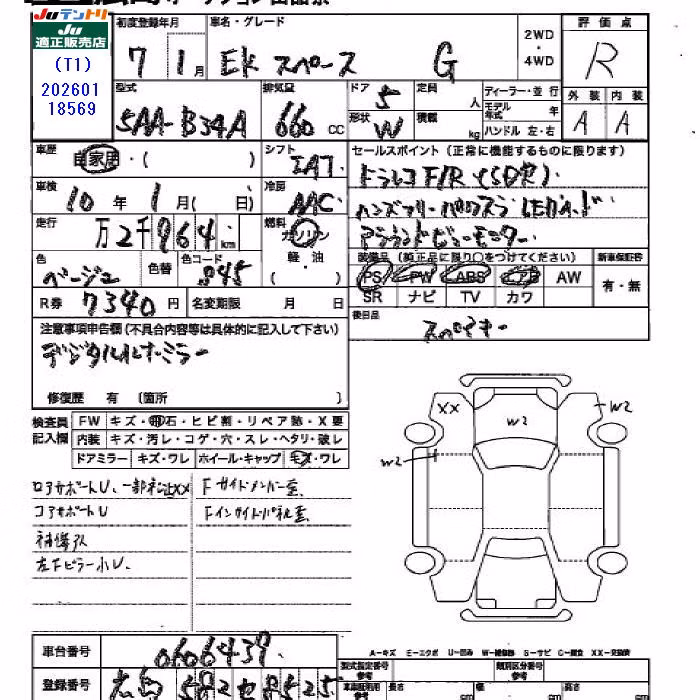 Juテントリ
Ju
適正販売店
(T1)
202601
18569
初度登録年月
7年 1月
車名・グレード
EK スペース G
2WD
・
4WD
評価点
R
型式
5AA-B34A
排気量
660 CC
ドア
5
形状
W
定員
人
積載
kg
ディーラー・並行
モデル年式 年
ハンドル 左・右
外装 内装
A A
車歴
自家用・( )
シフト
IAT
セールスポイント(正常に機能するものに限ります)
ドラレコ F/R (SD欠)
ハンズフリーパワスラ LEDヘッド
アラウンドビューモニター
車検
10年 1月( 日)
冷房
AAC
走行
万2千964km
燃料
ガソリン
軽・油
( )
色
ベージュ
色替
色コード
845
装備品(純正品に限り○をつけてください)
新車保証書
PS PW ABS エアB AW
SR ナビ TV カワ
有・無
R券 7340円
名変期限 月 日
後日品
スペアキー
注意事項申告欄(不具合内容等は具体的に記入して下さい)
デジタルルームミラー
修復歴 有 〔箇所 〕
検査員
記入欄
FW キズ・飛石・ヒビ割・リペア跡・X要
内装 キズ・汚レ・コゲ・穴・スレ・ヘタリ・破レ
ドアミラー キズ・ワレ ホイール・キャップ キズ・ワレ
ロアサポートU、一部補正XX
コアサポートU
補修入
左Fピラー小U
Fサイドメンバー歪
Fインサイドパネル歪
XX
W2
W2
W2
車台番号
0606439
登録番号
広島 582 せ 8525
A-キズ E-エクボ U-凹み W-補修跡 S-サビ C-腐食 XX-交換済
型式指定番号
参考
類別区分番号
参考
車庫証明用
参考
長さ
cm
幅
cm
高さ
cm